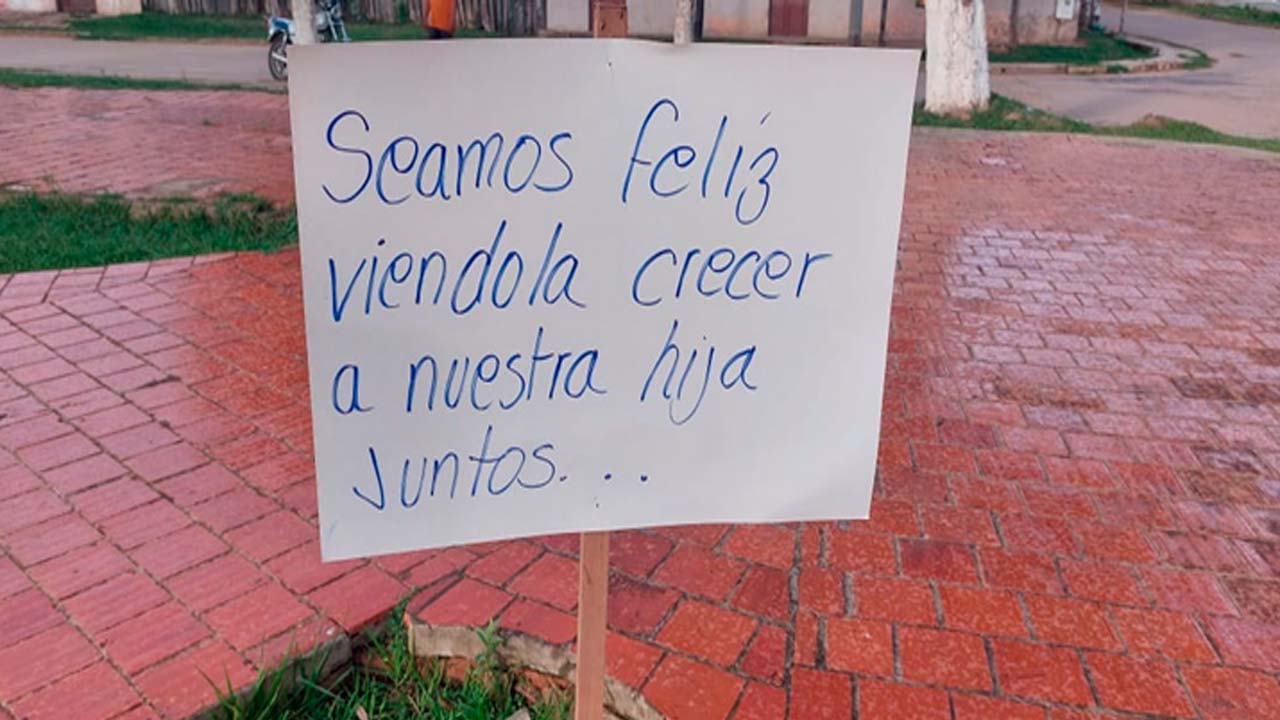 Seamos felíz
viendola crecer
a nuestra hija
Juntos...